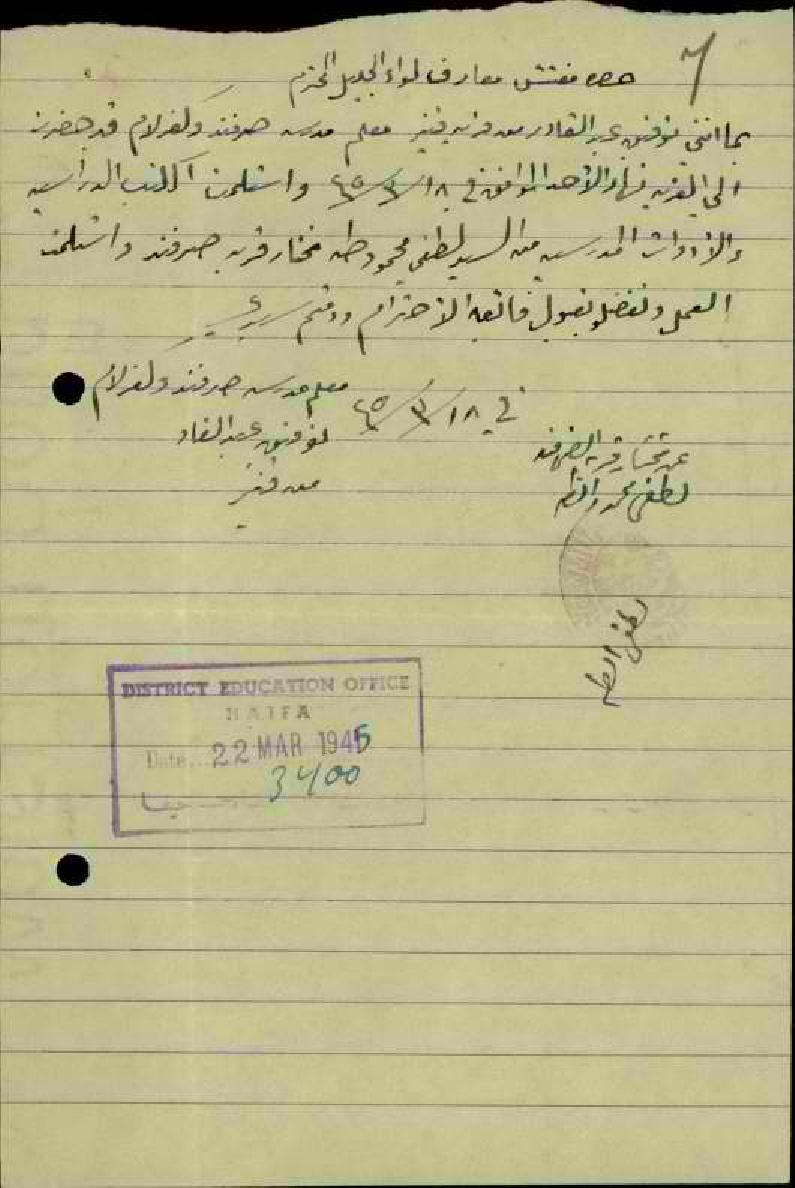 حضرة مفتش معارف لواء الجليل المحترم
بما انني توفيق عبد القادر من قرية قنير معلم مدرسة صرفند وكفرلام قد حضرت
الى القرية نهار الأحد الموافق في ١٨/٣/٤٥ واستلمت الكتب الدراسية
والأدوات المدرسية من السيد لطفي محمود طه مختار قرية صرفند واستلمت
العمل وتفضلو بقبول فائق الاحترام ودمتم سيدي
في ١٨/٣/٤٥
معلم مدرسة صرفند وكفرلام
توفيق عبد القادر
من قنير
عن مختار قرية الصرفند
لطفي محمود الطه
لطفي الطه
DISTRICT EDUCATION OFFICE
HAIFA
Date... 22 MAR 1945
3400
حيفا